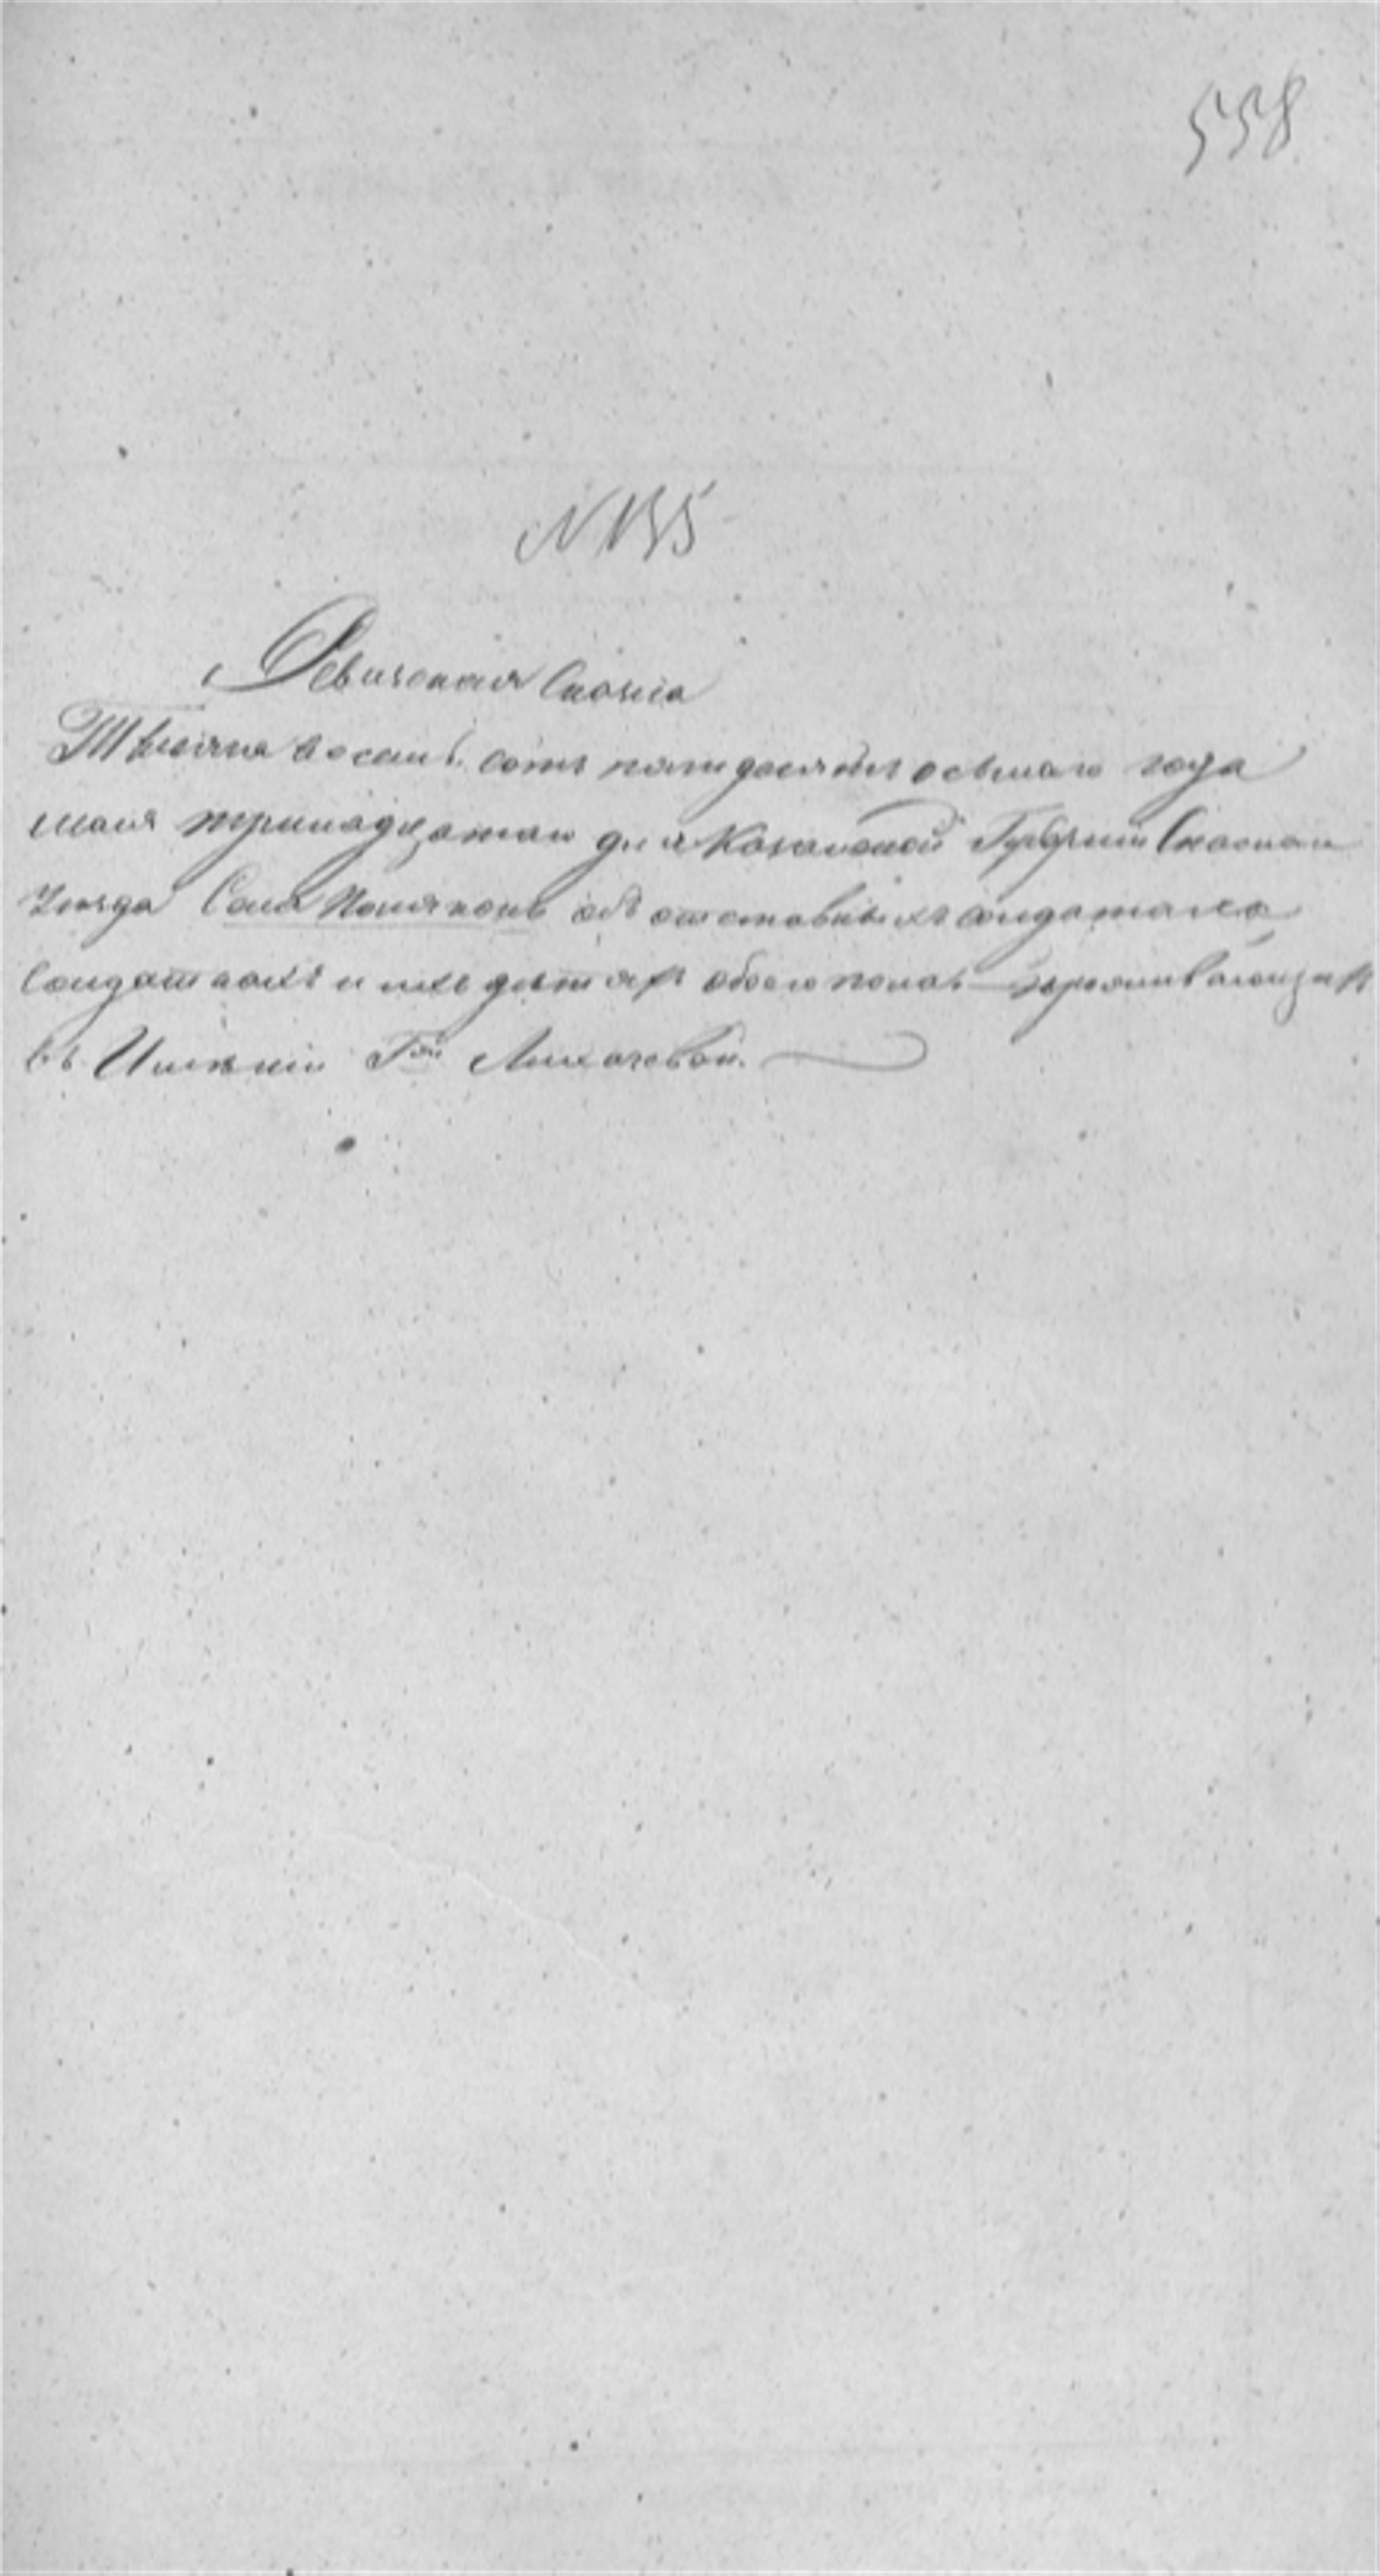 558
N 135
Ревизская Сказка
Тысяча восемь сотъ пятьдесятъ осьмаго года
маія тринадцатаго дня Казанской Губерніи Спаскаго
Уезда Села Полянокъ объ отставныхъ солдатахъ
Солдаткахъ и ихъ детяхъ обоего пола проживающихъ
въ Имѣніи Гжи Лихачевой.